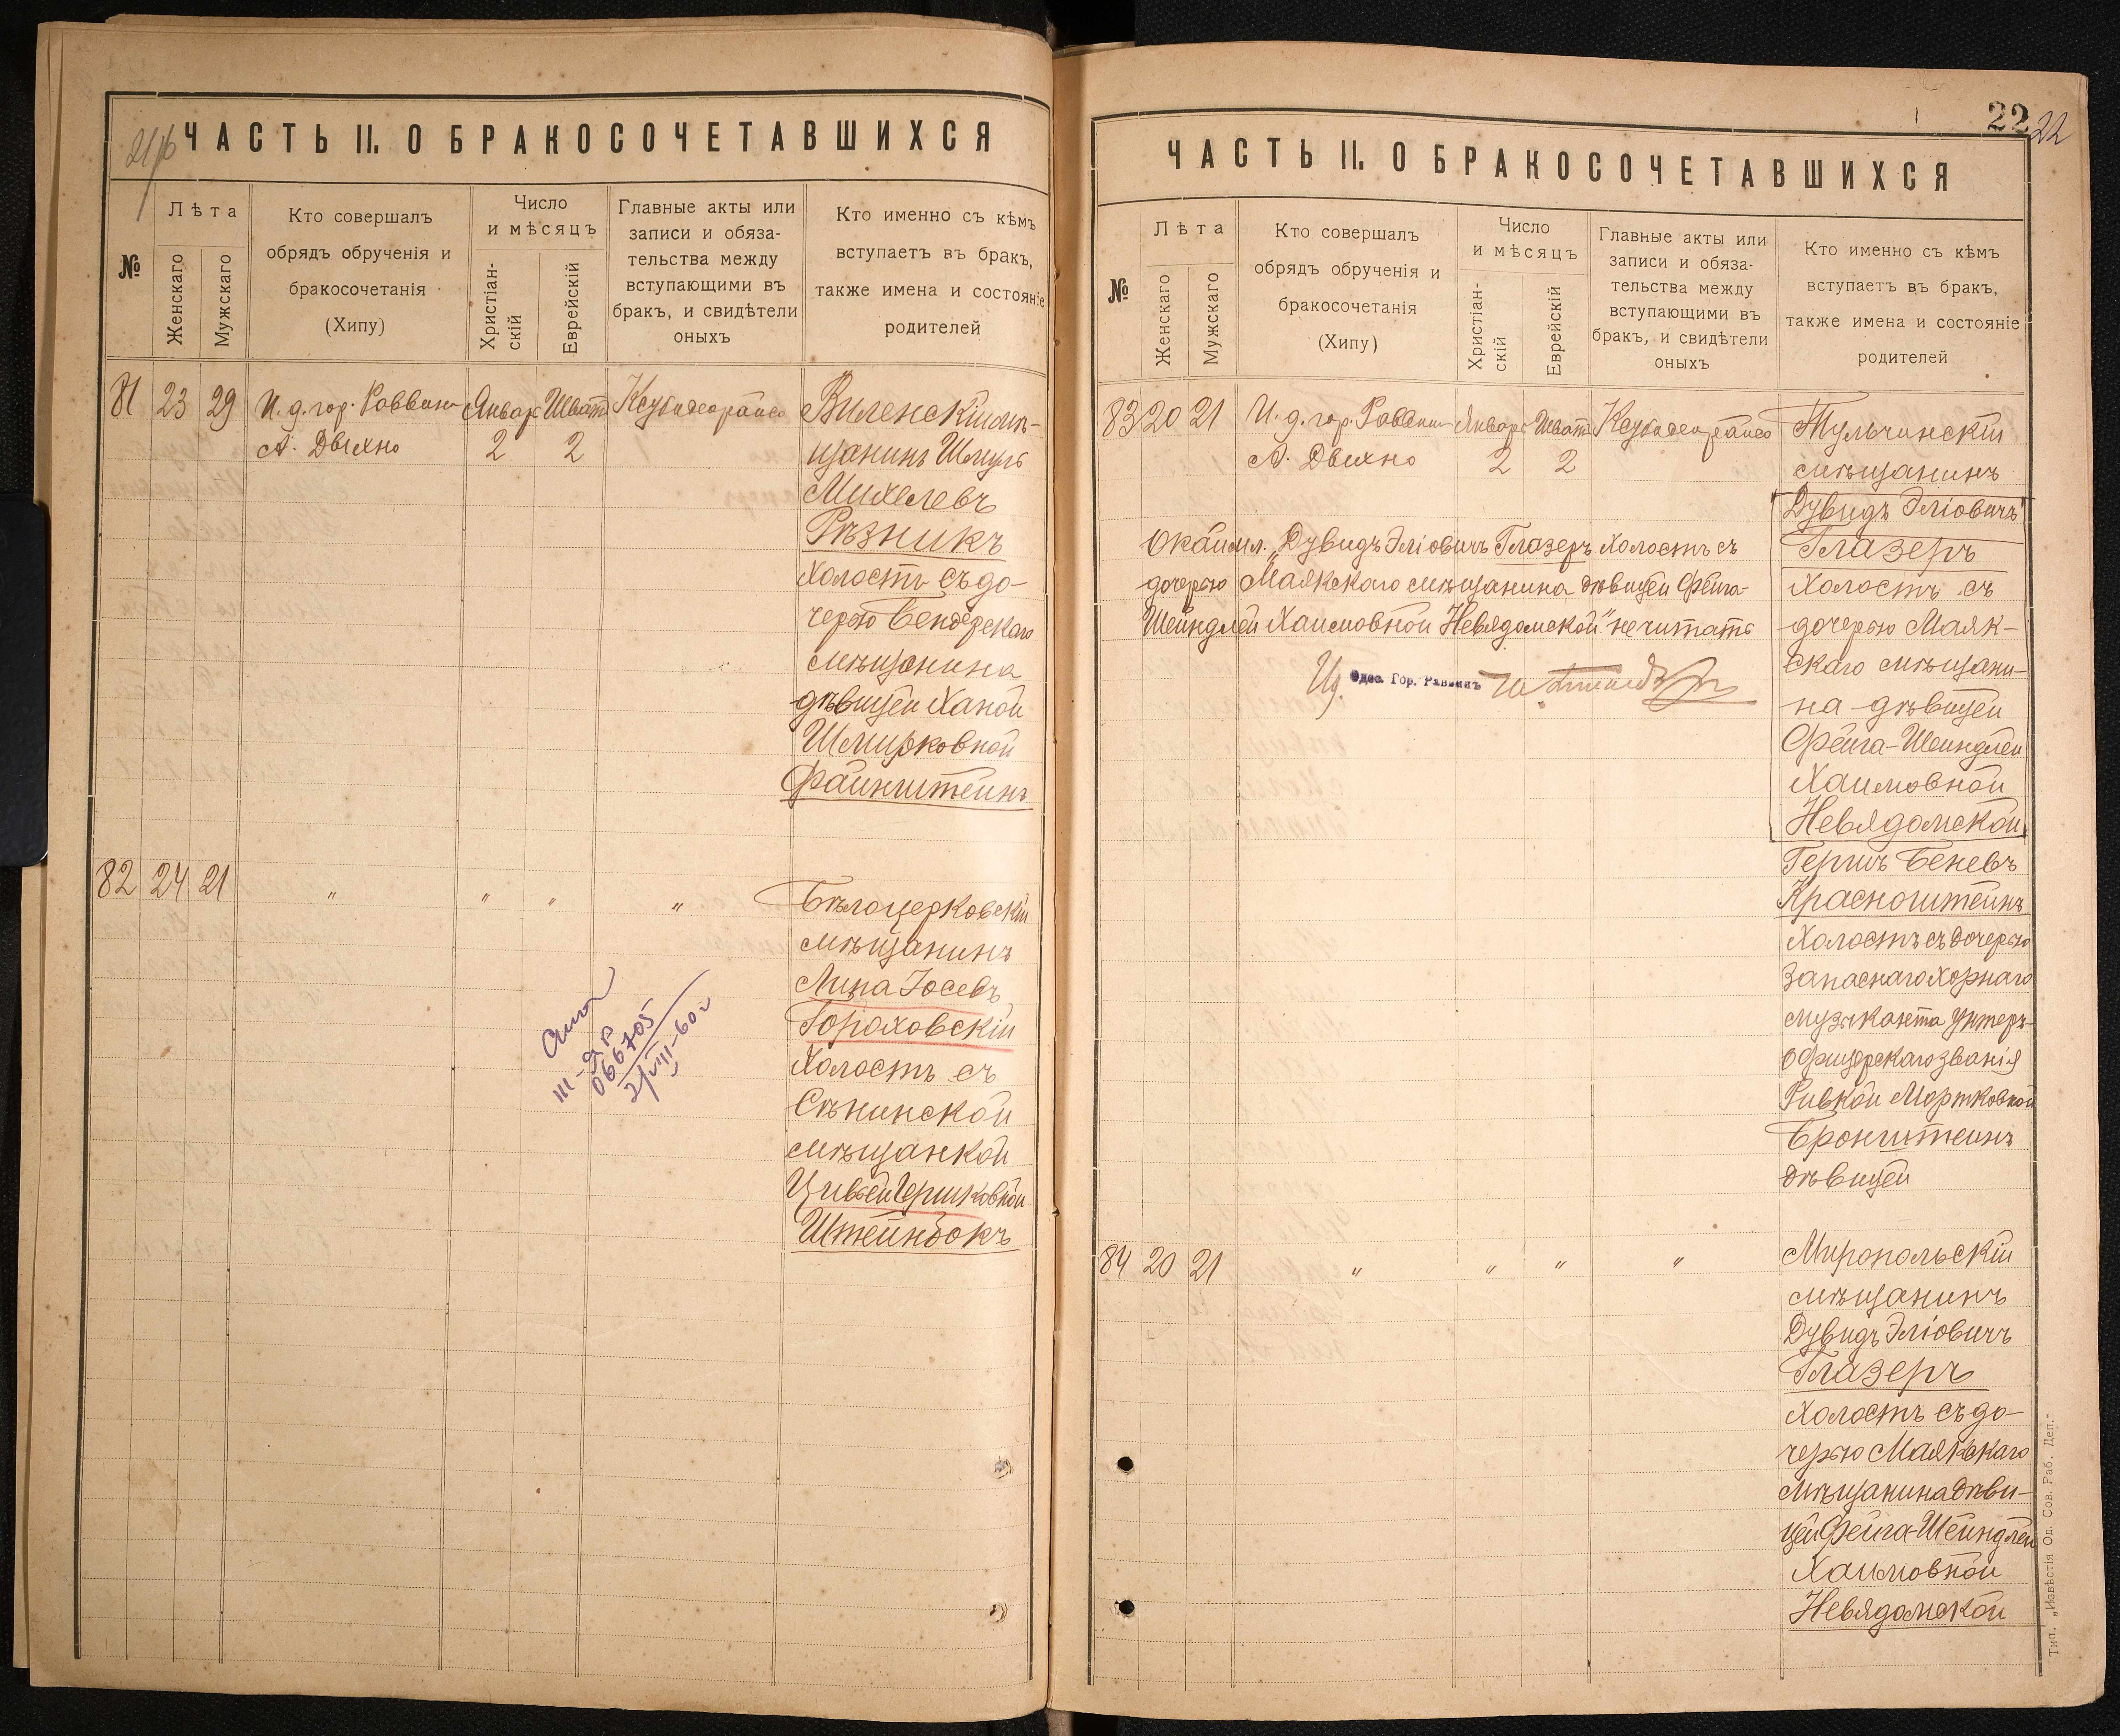 21об
ЧАСТЬ II. О БРАКОСОЧЕТАВШИХСЯ
№
Лѣта
Женскаго
Мужскаго
Кто совершалъ
обрядъ обрученія и
бракосочетанія
(Хипу)
Число
и мѣсяцъ
Христіан-
скій
Еврейскій
Главные акты или
записи и обяза-
тельства между
вступающими въ
бракъ, и свидѣтели
оныхъ
Кто именно съ кѣмъ
вступаетъ въ бракъ,
также имена и состояніе
родителей
81 23 29 И. д. гор. Раввина Январ Шват
А. Двихно 2 2
Виленскій мѣ-
щанинъ Шмуль
Михелевъ
Рѣзникъ
холостъ съ до-
черью Бендерскаго
мѣщанина
дѣвицей Ханой
Шмирковной
Файнштейнъ
82 24 21 " " " "
Бѣлоцерковскій
мѣщанинъ
Липа Іосевъ
Гороховскій
холостъ съ
Сѣнинской
мѣщанкой
Цивьей Гершковной
Штейнбокъ
III-ЯР
066705
2/VIII-60г
22
22
ЧАСТЬ II. О БРАКОСОЧЕТАВШИХСЯ
№
Лѣта
Женскаго
Мужскаго
Кто совершалъ
обрядъ обрученія и
бракосочетанія
(Хипу)
Число
и мѣсяцъ
Христіан-
скій
Еврейскій
Главные акты или
записи и обяза-
тельства между
вступающими въ
бракъ, и свидѣтели
оныхъ
Кто именно съ кѣмъ
вступаетъ въ бракъ,
также имена и состояніе
родителей
83 20 21 И. д. гор. Раввина Январь Шватъ
А. Двихно 2 2
Тульчинскій
мѣщанинъ
Дувидъ Эліовичъ
Глазеръ
холостъ съ
дочерью Маяк-
скаго мѣщани-
на дѣвицей
Фейга-Шейндлей
Хаимовной
Невядомской
Гершъ Беневъ
Красноштейнъ
холостъ съ дочерью
запаснаго хорнаго
музыканта унтеръ-
офицерскаго званія
Ривкой Мортковной
Бронштейнъ
дѣвицей
Окаймл. „Дувидъ Эліовичъ Глазеръ холостъ съ
дочерью Маякскаго мѣщанина дѣвицей Фейга-
Шейндлей Хаимовной Невядомской" не читать
Одес. Гор. Раввинъ
84 20 21 " " " "
Миропольскій
мѣщанинъ
Дувидъ Эліовичъ
Глазеръ
холостъ съ до-
черью Маякскаго
мѣщанина дѣви-
цей Фейга-Шейндлей
Хаимовной
Невядомской
Тип. „Извѣстія Од. Сов. Раб. Деп."